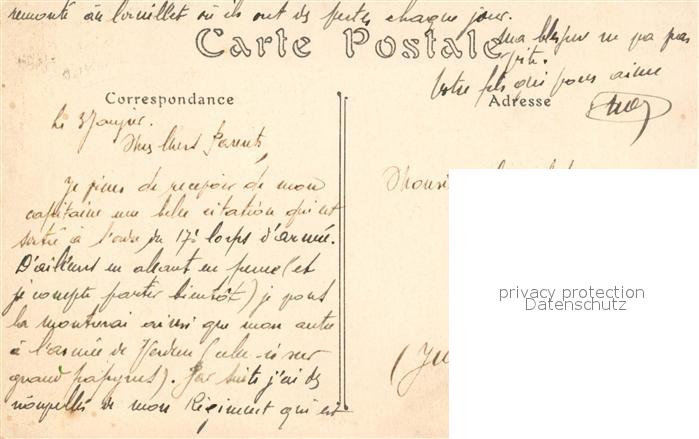 remonté au Cornillet où ils ont des pertes chaque jour.
Carte Postale
ma blessure ne va pas
vite.
Votre fils qui vous aime
Correspondance
Adresse
Le 3 Janvier.
Mes chers Parents,
Je viens de recevoir de mon
capitaine une belle citation qui est
sortie à l'ordre du 17è Corps d'armée.
D'ailleurs en allant en perme (et
je compte partir bientôt) je vous
la montrerai ainsi que mon autre
à l'armée de Verdun (celle-ci sur
grand papyrus). Par suite j'ai des
nouvelles de mon Régiment qui est
Monsieur
privacy protection
Datenschutz